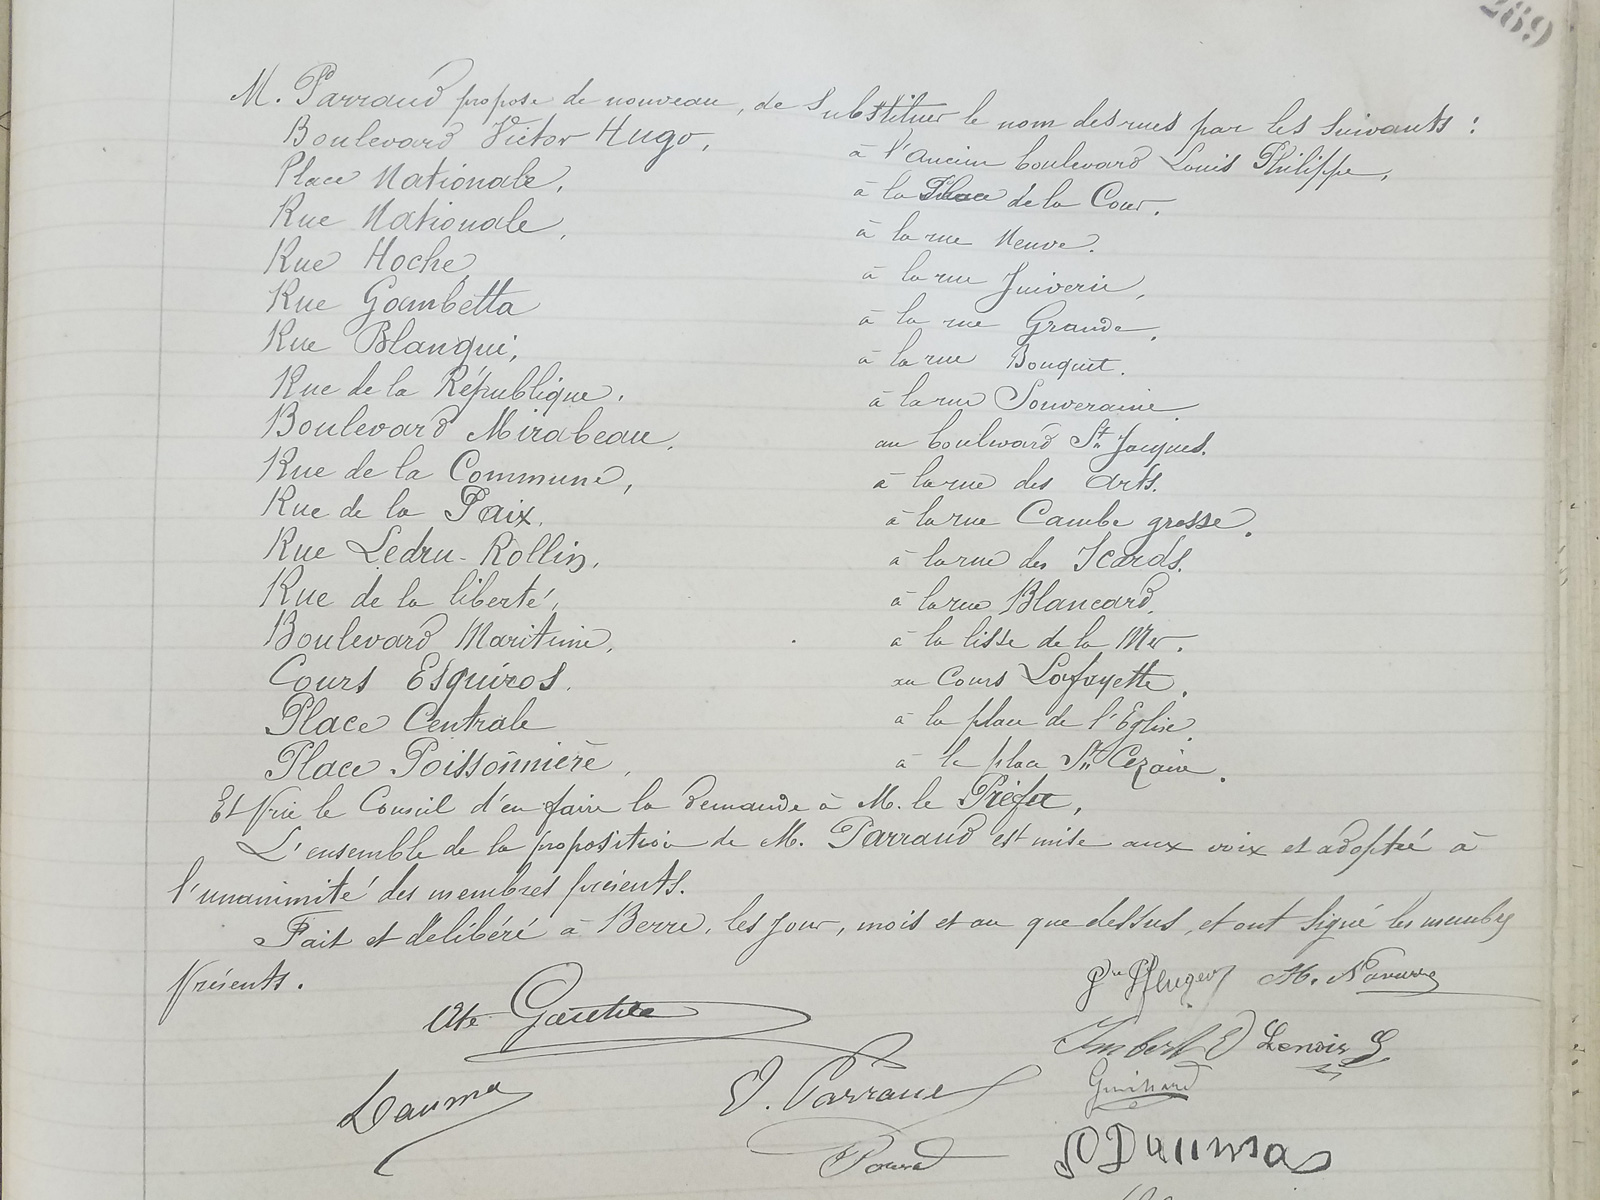 289
M. Parraud propose de nouveau, de substituer le nom des rues par les suivants :
Boulevard Victor Hugo, à l'ancien boulevard Louis Philippe,
Place Nationale, à la Place de la Cour.
Rue Nationale, à la rue Neuve.
Rue Hoche, à la rue Juiverie,
Rue Gambetta à la rue Grande,
Rue Blanqui, à la rue Bouquet.
Rue de la République, à la rue Souveraine.
Boulevard Mirabeau, au boulevard St Jacques.
Rue de la Commune, à la rue des Arts.
Rue de la Paix, à la rue Cambe grosse.
Rue Ledru-Rollin, à la rue des Icards.
Rue de la liberté, à la rue Blancard.
Boulevard Maritime, à la lisse de la Mer.
Cours Esquiros. au Cours Lafayette.
Place Centrale à la place de l'Eglise.
Place Poissonnière, à la place St Cézaire.
Et prie le Conseil d'en faire la demande à M. le Préfet,
L'ensemble de la proposition de M. Parraud est mise aux voix et adoptée à
l'unanimité des membres présents.
Fait et délibéré à Berre, les jour, mois et an que dessus, et ont signé les membres
présents.
M. Navarre
Gautier
Imbert D Lenoir G
Dauma
Parraud
Guichard
Dauma